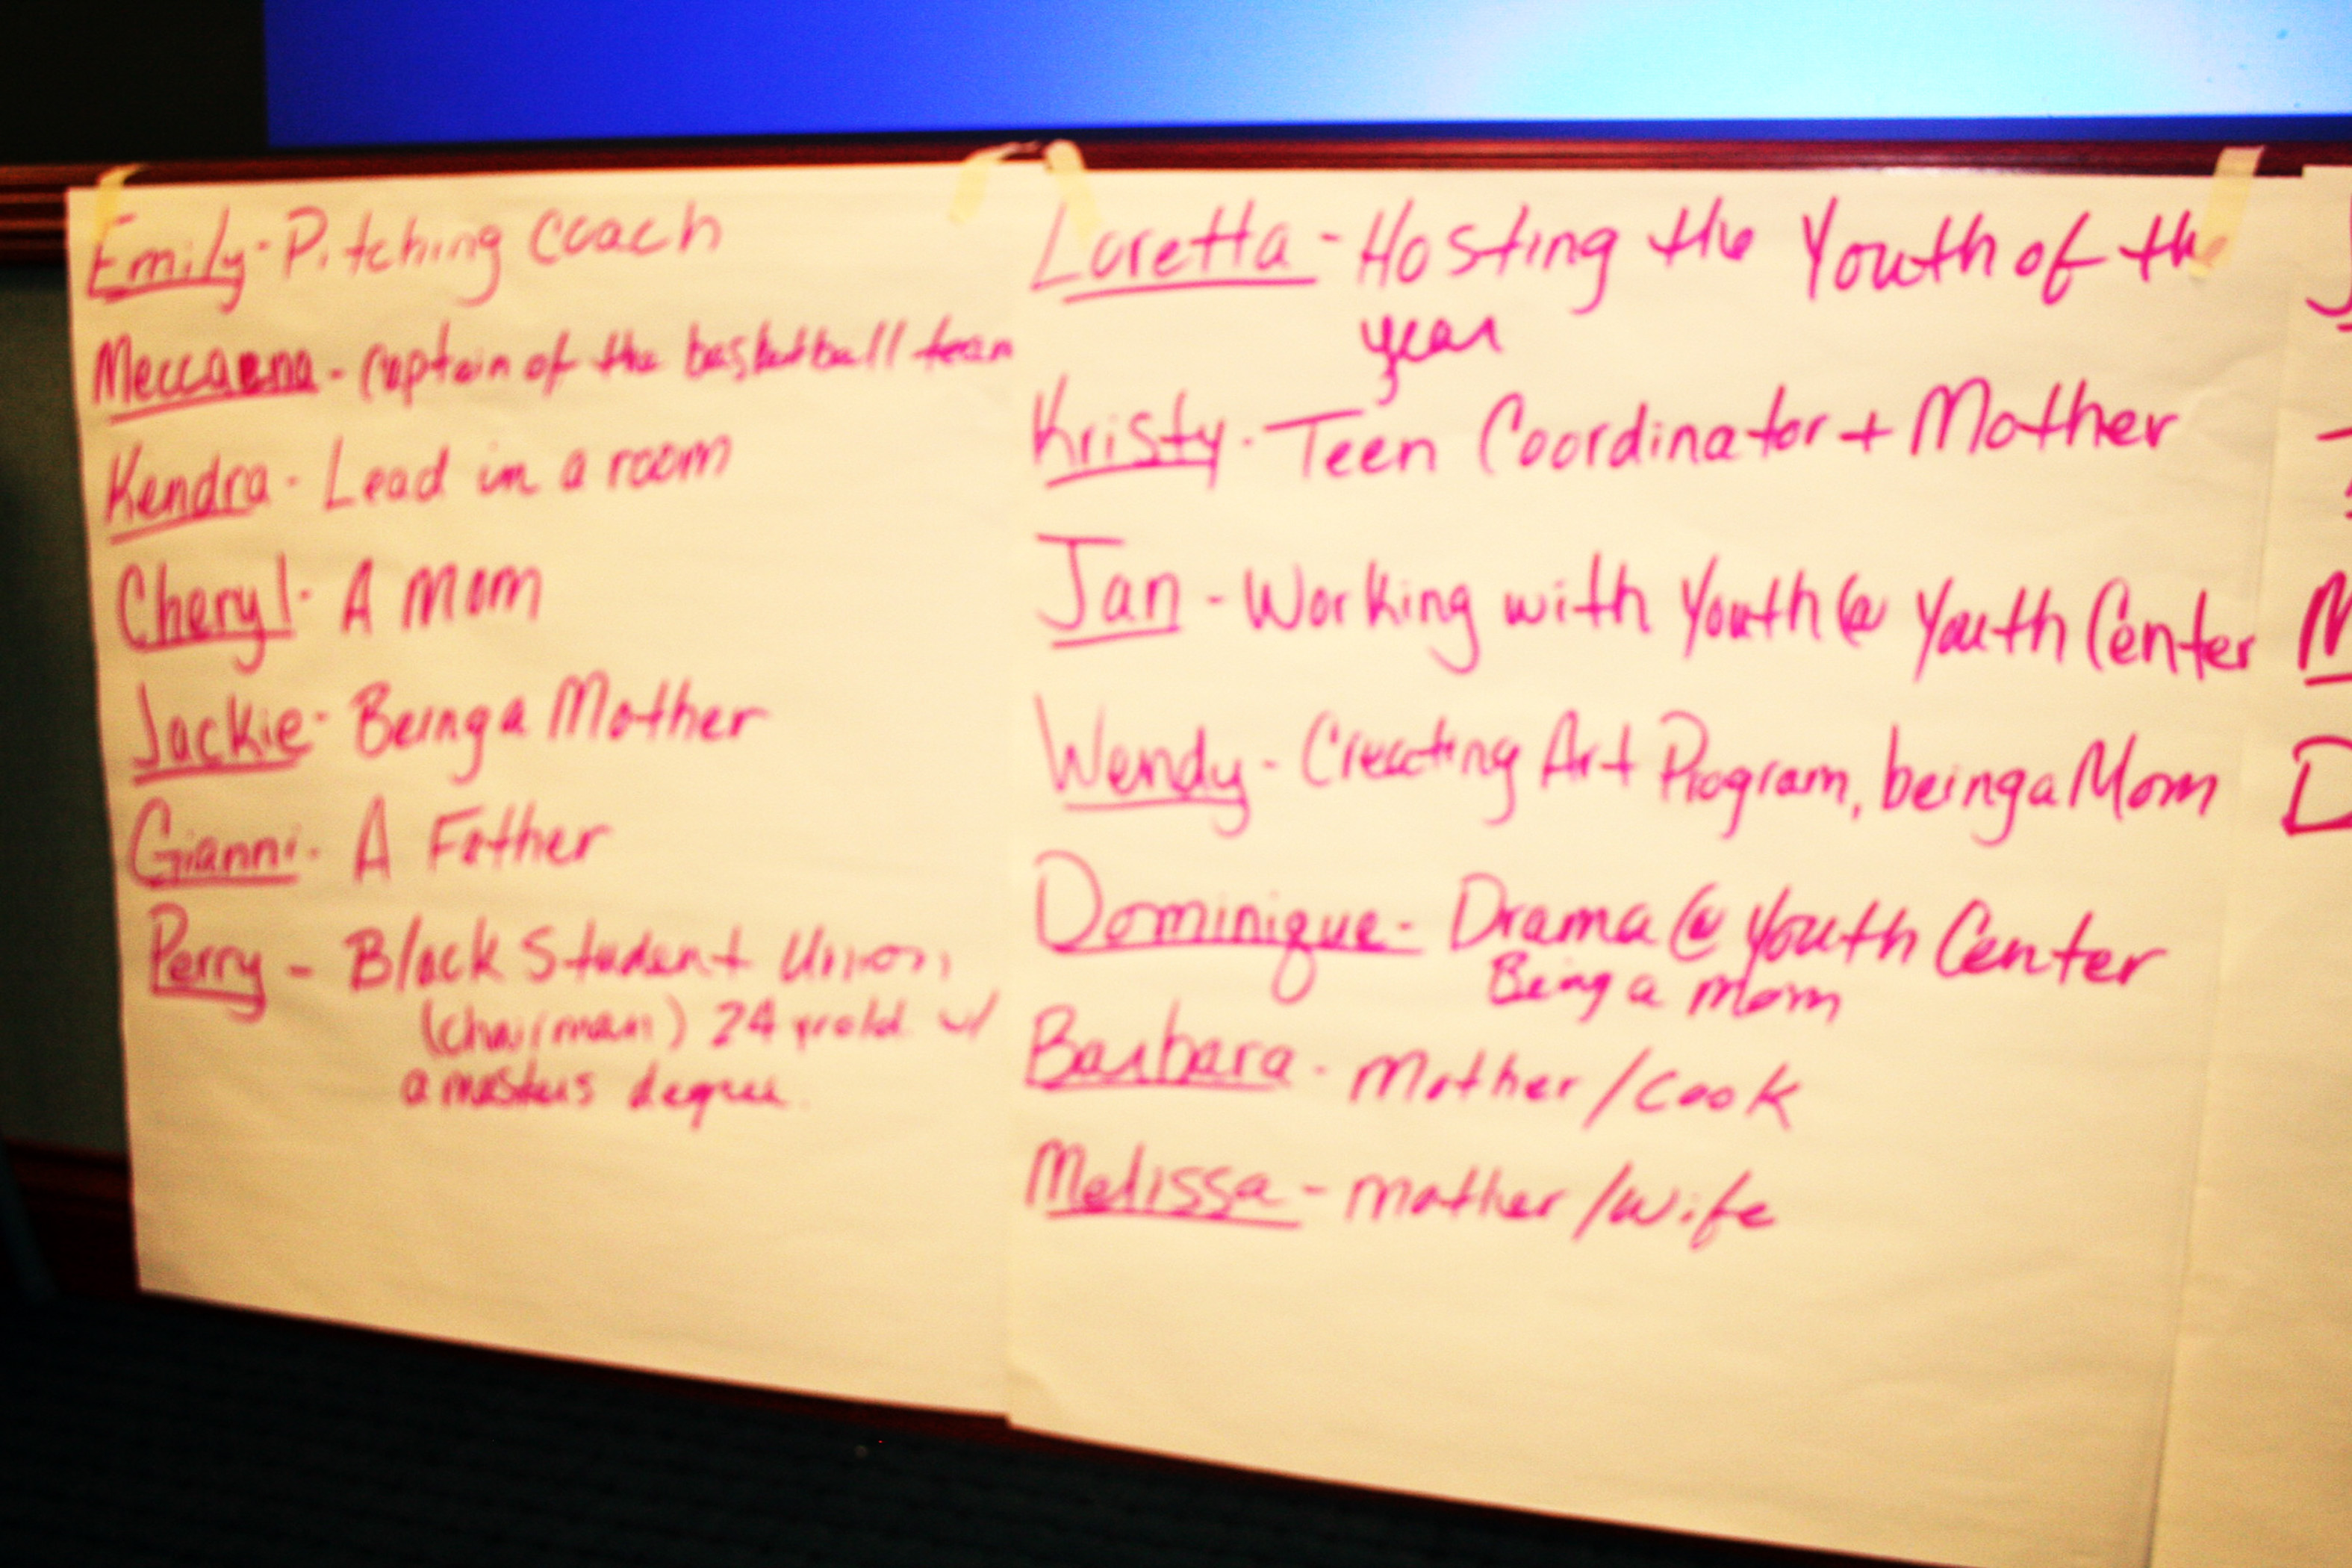 Emily - Pitching Coach
Meccaena - Captain of the basketball team
Kendra - Lead in a room
Cheryl - A Mom
Jackie - Being a Mother
Gianni - A Father
Perry - Black Student Union
(chairman) 24 yr old w/
a masters degree
Loretta - Hosting the Youth of the
year
Kristy - Teen Coordinator + Mother
Jan - Working with Youth @ Youth Center
Wendy - Creating Art Program, being a Mom
Dominique - Drama @ Youth Center
Being a Mom
Barbara - Mother/Cook
Melissa - mother/wife
M
D